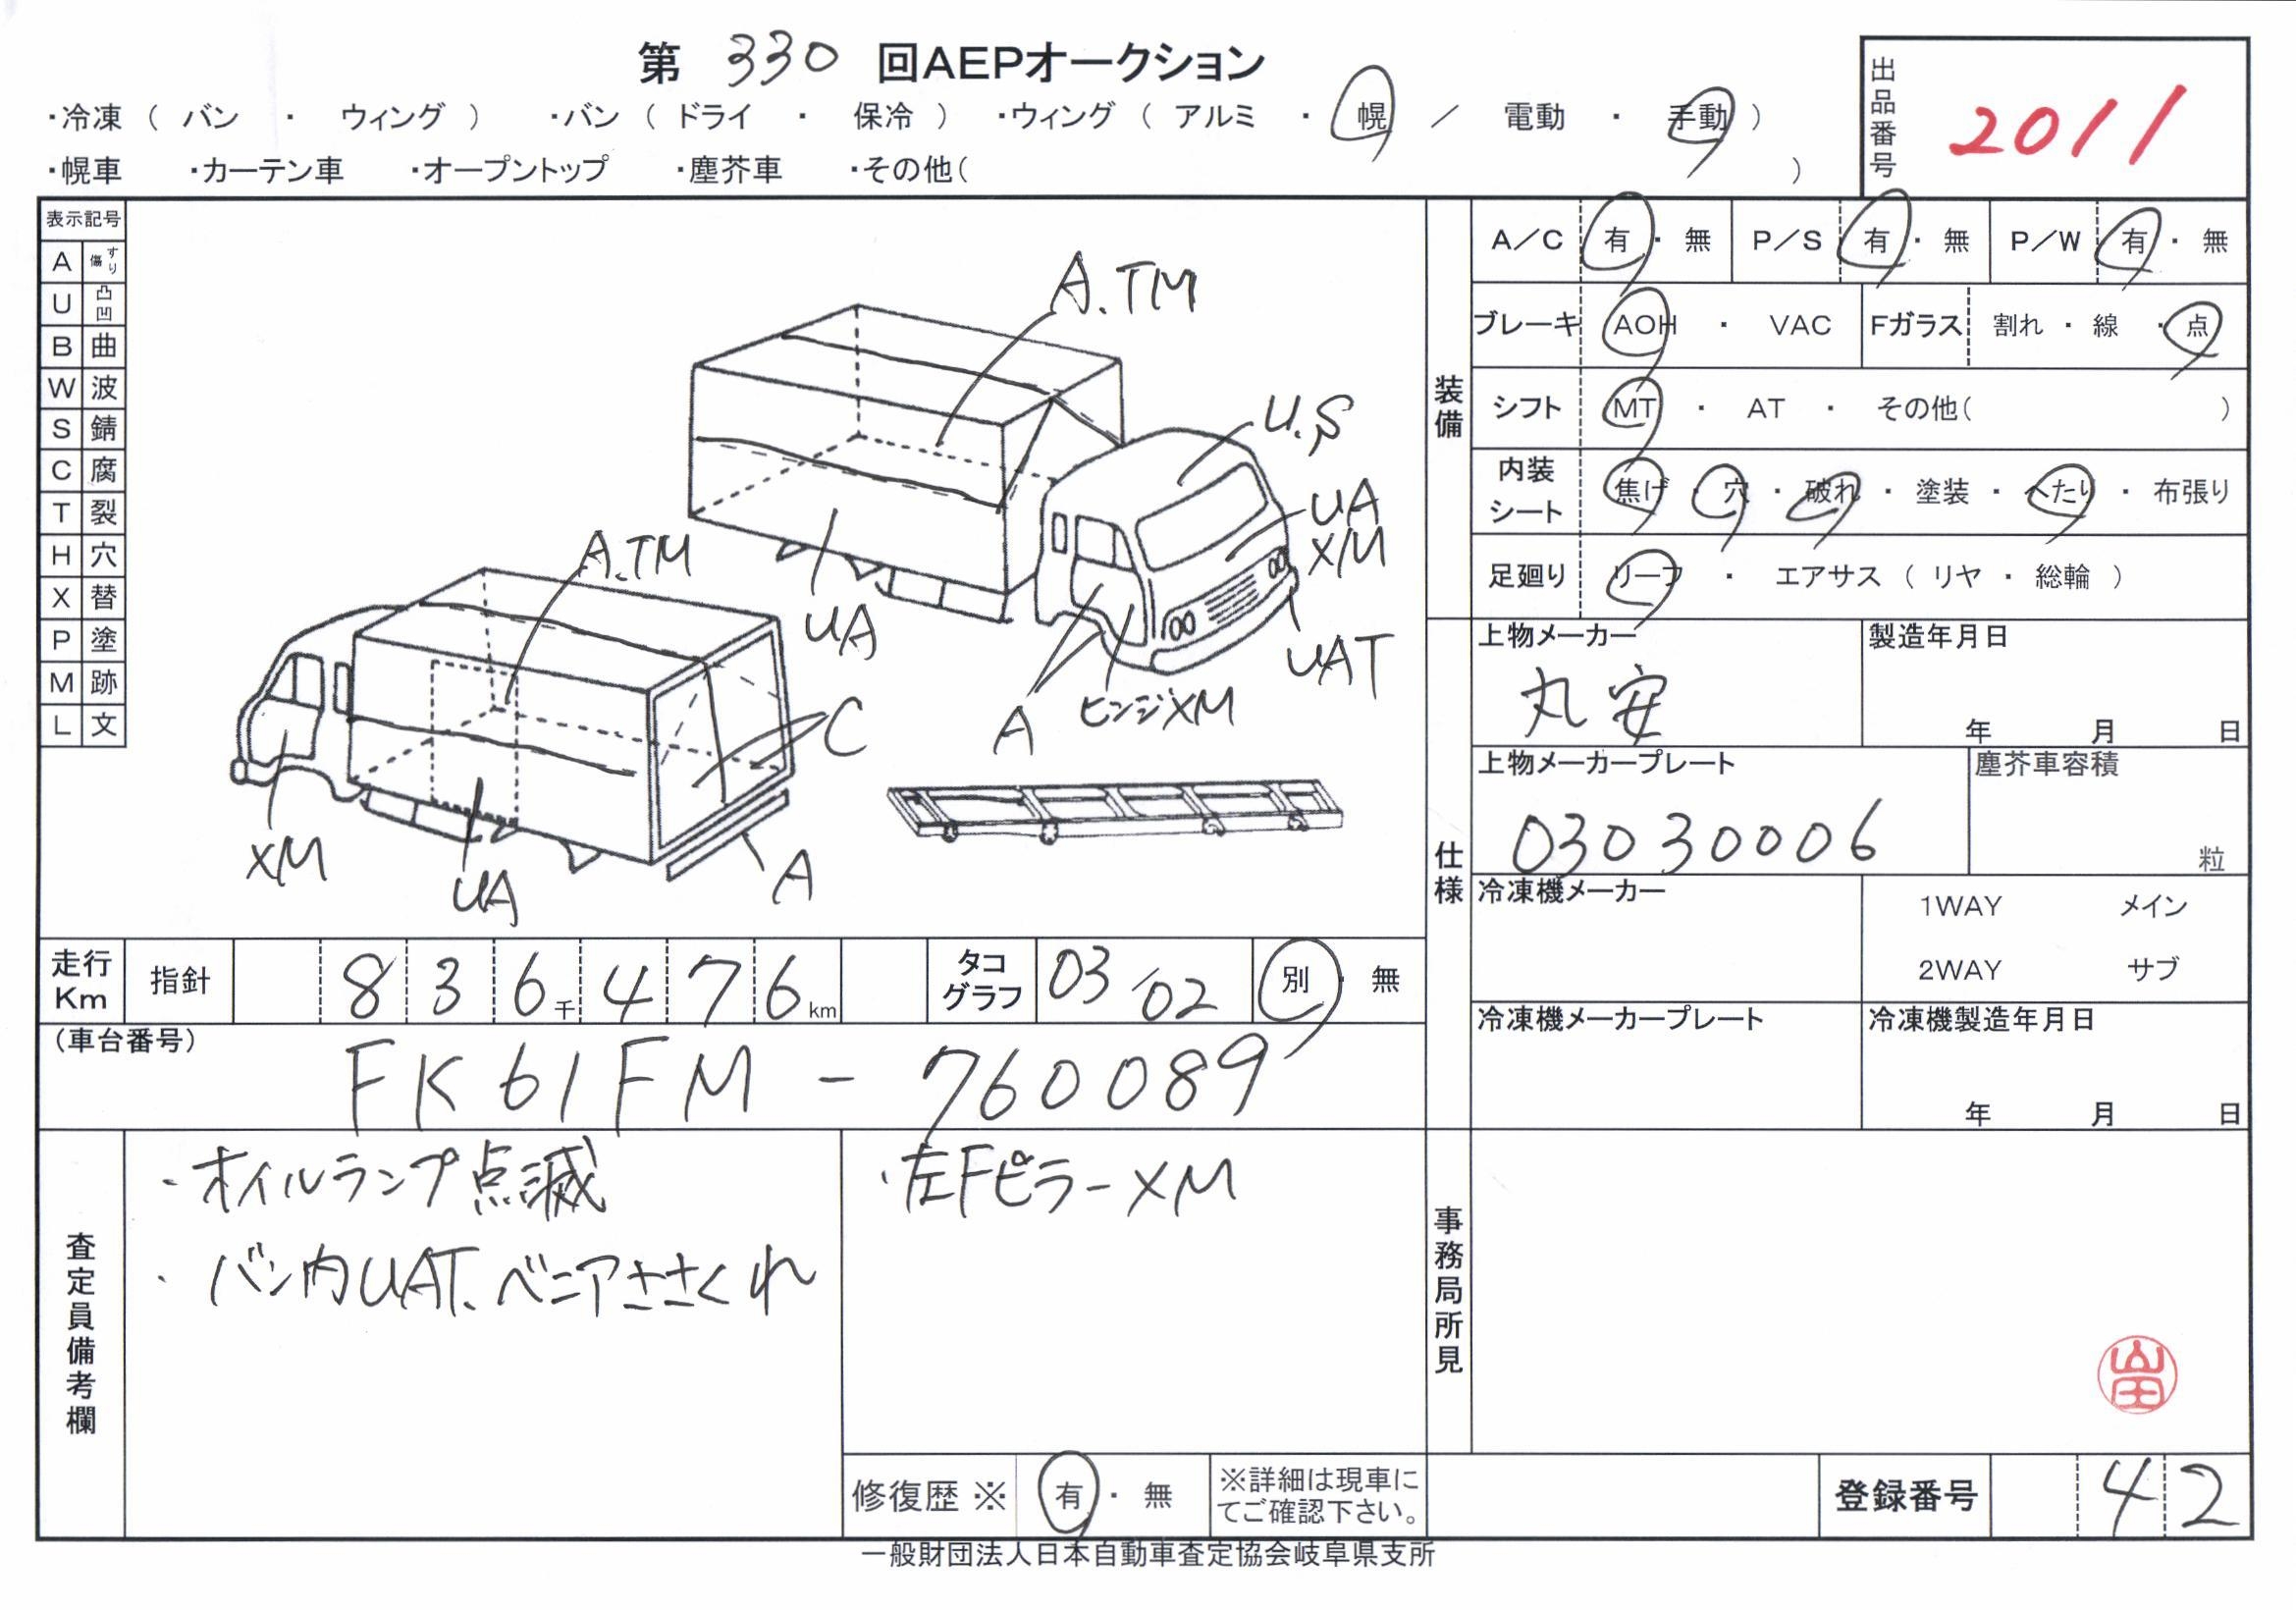 第 330 回AEPオークション
・冷凍 （ バン ・ ウィング ） ・バン （ ドライ ・ 保冷 ） ・ウィング （ アルミ ・ 幌 ／ 電動 ・ 手動 ）
・幌車 ・カーテン車 ・オープントップ ・塵芥車 ・その他（ ）
出品番号 2011
表示記号
A すり傷
U 凸凹
B 曲
W 波
S 錆
C 腐
T 裂
H 穴
X 替
P 塗
M 跡
L 文
A.TM
U.S
UA
XM
UAT
UA
A
ヒンジXM
A.TM
C
XM
UA
A
装備
A／C 有 ・ 無 P／S 有 ・ 無 P／W 有 ・ 無
ブレーキ AOH ・ VAC Fガラス 割れ ・ 線 ・ 点
シフト MT ・ AT ・ その他（ ）
内装シート 焦げ ・ 穴 ・ 破れ ・ 塗装 ・ へたり ・ 布張り
足廻り リーフ ・ エアサス （ リヤ ・ 総輪 ）
仕様
上物メーカー 製造年月日
丸安
年 月 日
上物メーカープレート 塵芥車容積
03030006
粒
冷凍機メーカー 1WAY メイン
2WAY サブ
冷凍機メーカープレート 冷凍機製造年月日
年 月 日
走行Km 指針 836千476km タコグラフ 03/02 別 ・ 無
（車台番号）
FK61FM - 760089
査定員備考欄
・オイルランプ点滅
・バン内UAT、ベニアささくれ
・左FピラーXM
事務局所見
修復歴 ※ 有 ・ 無 ※詳細は現車にてご確認下さい。
登録番号 42
一般財団法人日本自動車査定協会岐阜県支所